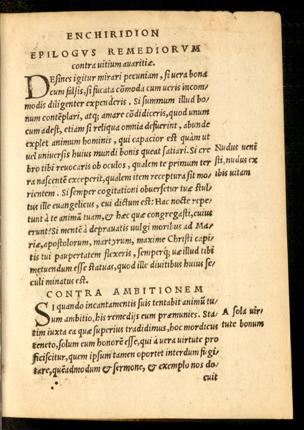 ENCHIRIDION
EPILOGVS REMEDIORVM
contra uitium auaritiæ.
Desines igitur mirari pecuniam, si uera bona
cum falsis, si fucata cōmoda cum ueris incom-
modis diligenter expenderis. Si summum illud bo-
num contēplari, atq; amare cōdidiceris, quod unum
cum adest, etiam si reliqua omnia defuerint, abunde
explet animum hominis, qui capacior est quàm ut
uel uniuersis huius mundi bonis queat satiari. Si cre
bro tibi reuocaris ob oculos, qualem te primum ter
ra nascentē exceperit, qualem item receptura sit mo-
rientem. Si semper cogitationi obuersetur tuæ stul-
tus ille euangelicus, cui dictum est: Hac nocte repe-
tunt à te animā tuam, & hæc quæ congregasti, cuius
erunt? Si mentē à deprauatis uulgi moribus ad Ma-
riæ, apostolorum, martyrum, maxime Christi capi-
tis tui paupertatem flexeris, semperq; uæ illud tibi
metuendum esse statuas, quod ille diuitibus huius se-
culi minatus est.
Nudus ueni
sti, nudus ex
ibis uitam
CONTRA AMBITIONEM
Si quando incantamentis suis tentabit animū tu-
um ambitio, his remedijs eum præmunies. Sta-
tim iuxta ea quæ superius tradidimus, hoc mordicus
teneto, solum eum honorē esse, qui à uera uirtute pro
ficiscitur, quem ipsum tamen oportet interdum fugi-
tare, quēadmodum & sermone, & exemplo nos do-
cuit
A sola uir-
tute bonum